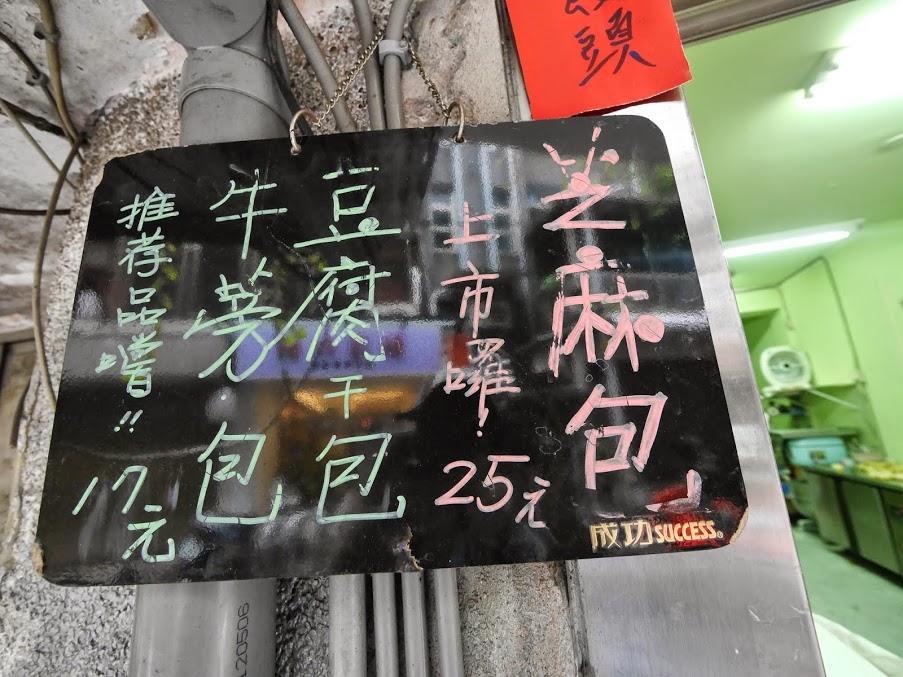 頭
芝麻包
上市囉! 25元
豆腐干包
牛蒡包
推荐品嚐!! 17元
成功 SUCCESS®
120506